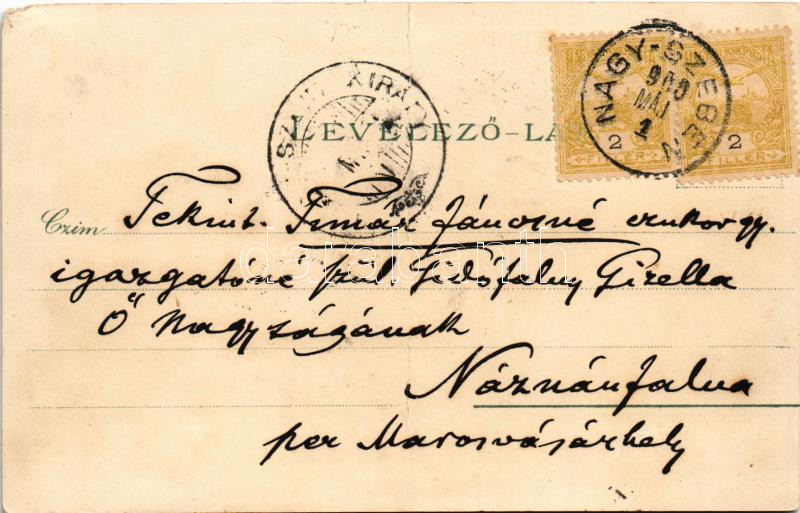 LEVELEZŐ-LA
NAGY-SZEBEN
900
MÁJ
1
2 2
FILLER FILLÉR
KIRÁLY
Czim.
Tekint. Timár Jánosné czukorgy.
igazgatóné szül. Gidófalvy Gizella
Ő Nagyságának
Náznánfalva
per Marosvásárhely
darabanth